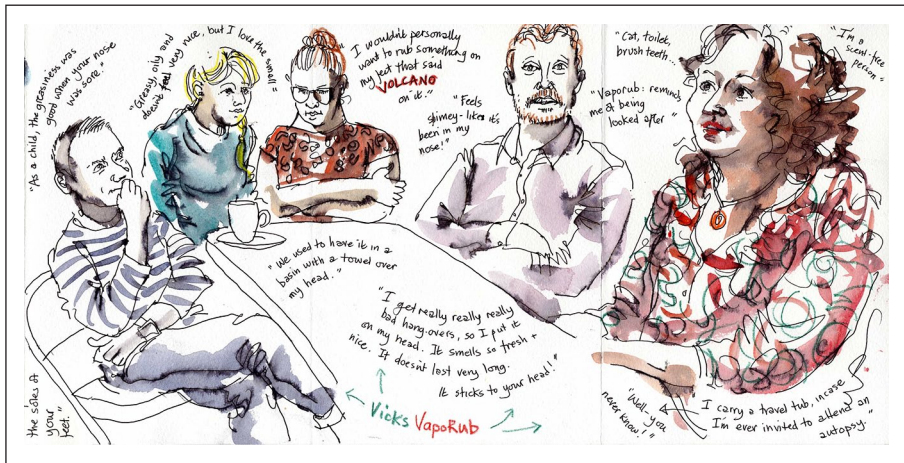 "As a child, the greasiness was
good when your nose
was sore."
"Greasy, oily and
doesnt feel very nice, but I love the smell"
"I wouldn't personally
want to rub something on
my feet that said
VOLCANO
on it."
"Feels
slimey - like it's
been in my
nose!"
"Cat, toilet,
brush teeth..."
"I'm a
scent-free
person"
"Vaporub: reminds
me of being
looked after"
"We used to have it in a
basin with a towel over
my head."
"I get really really really
bad hangovers, so I put it
on my head. It smells so fresh +
nice. It doesn't last very long.
It sticks to your head!"
Vicks VapoRub
the soles of
your
feet."
"Well, you
never know!"
I carry a travel tub, incase
I'm ever invited to attend an
autopsy."